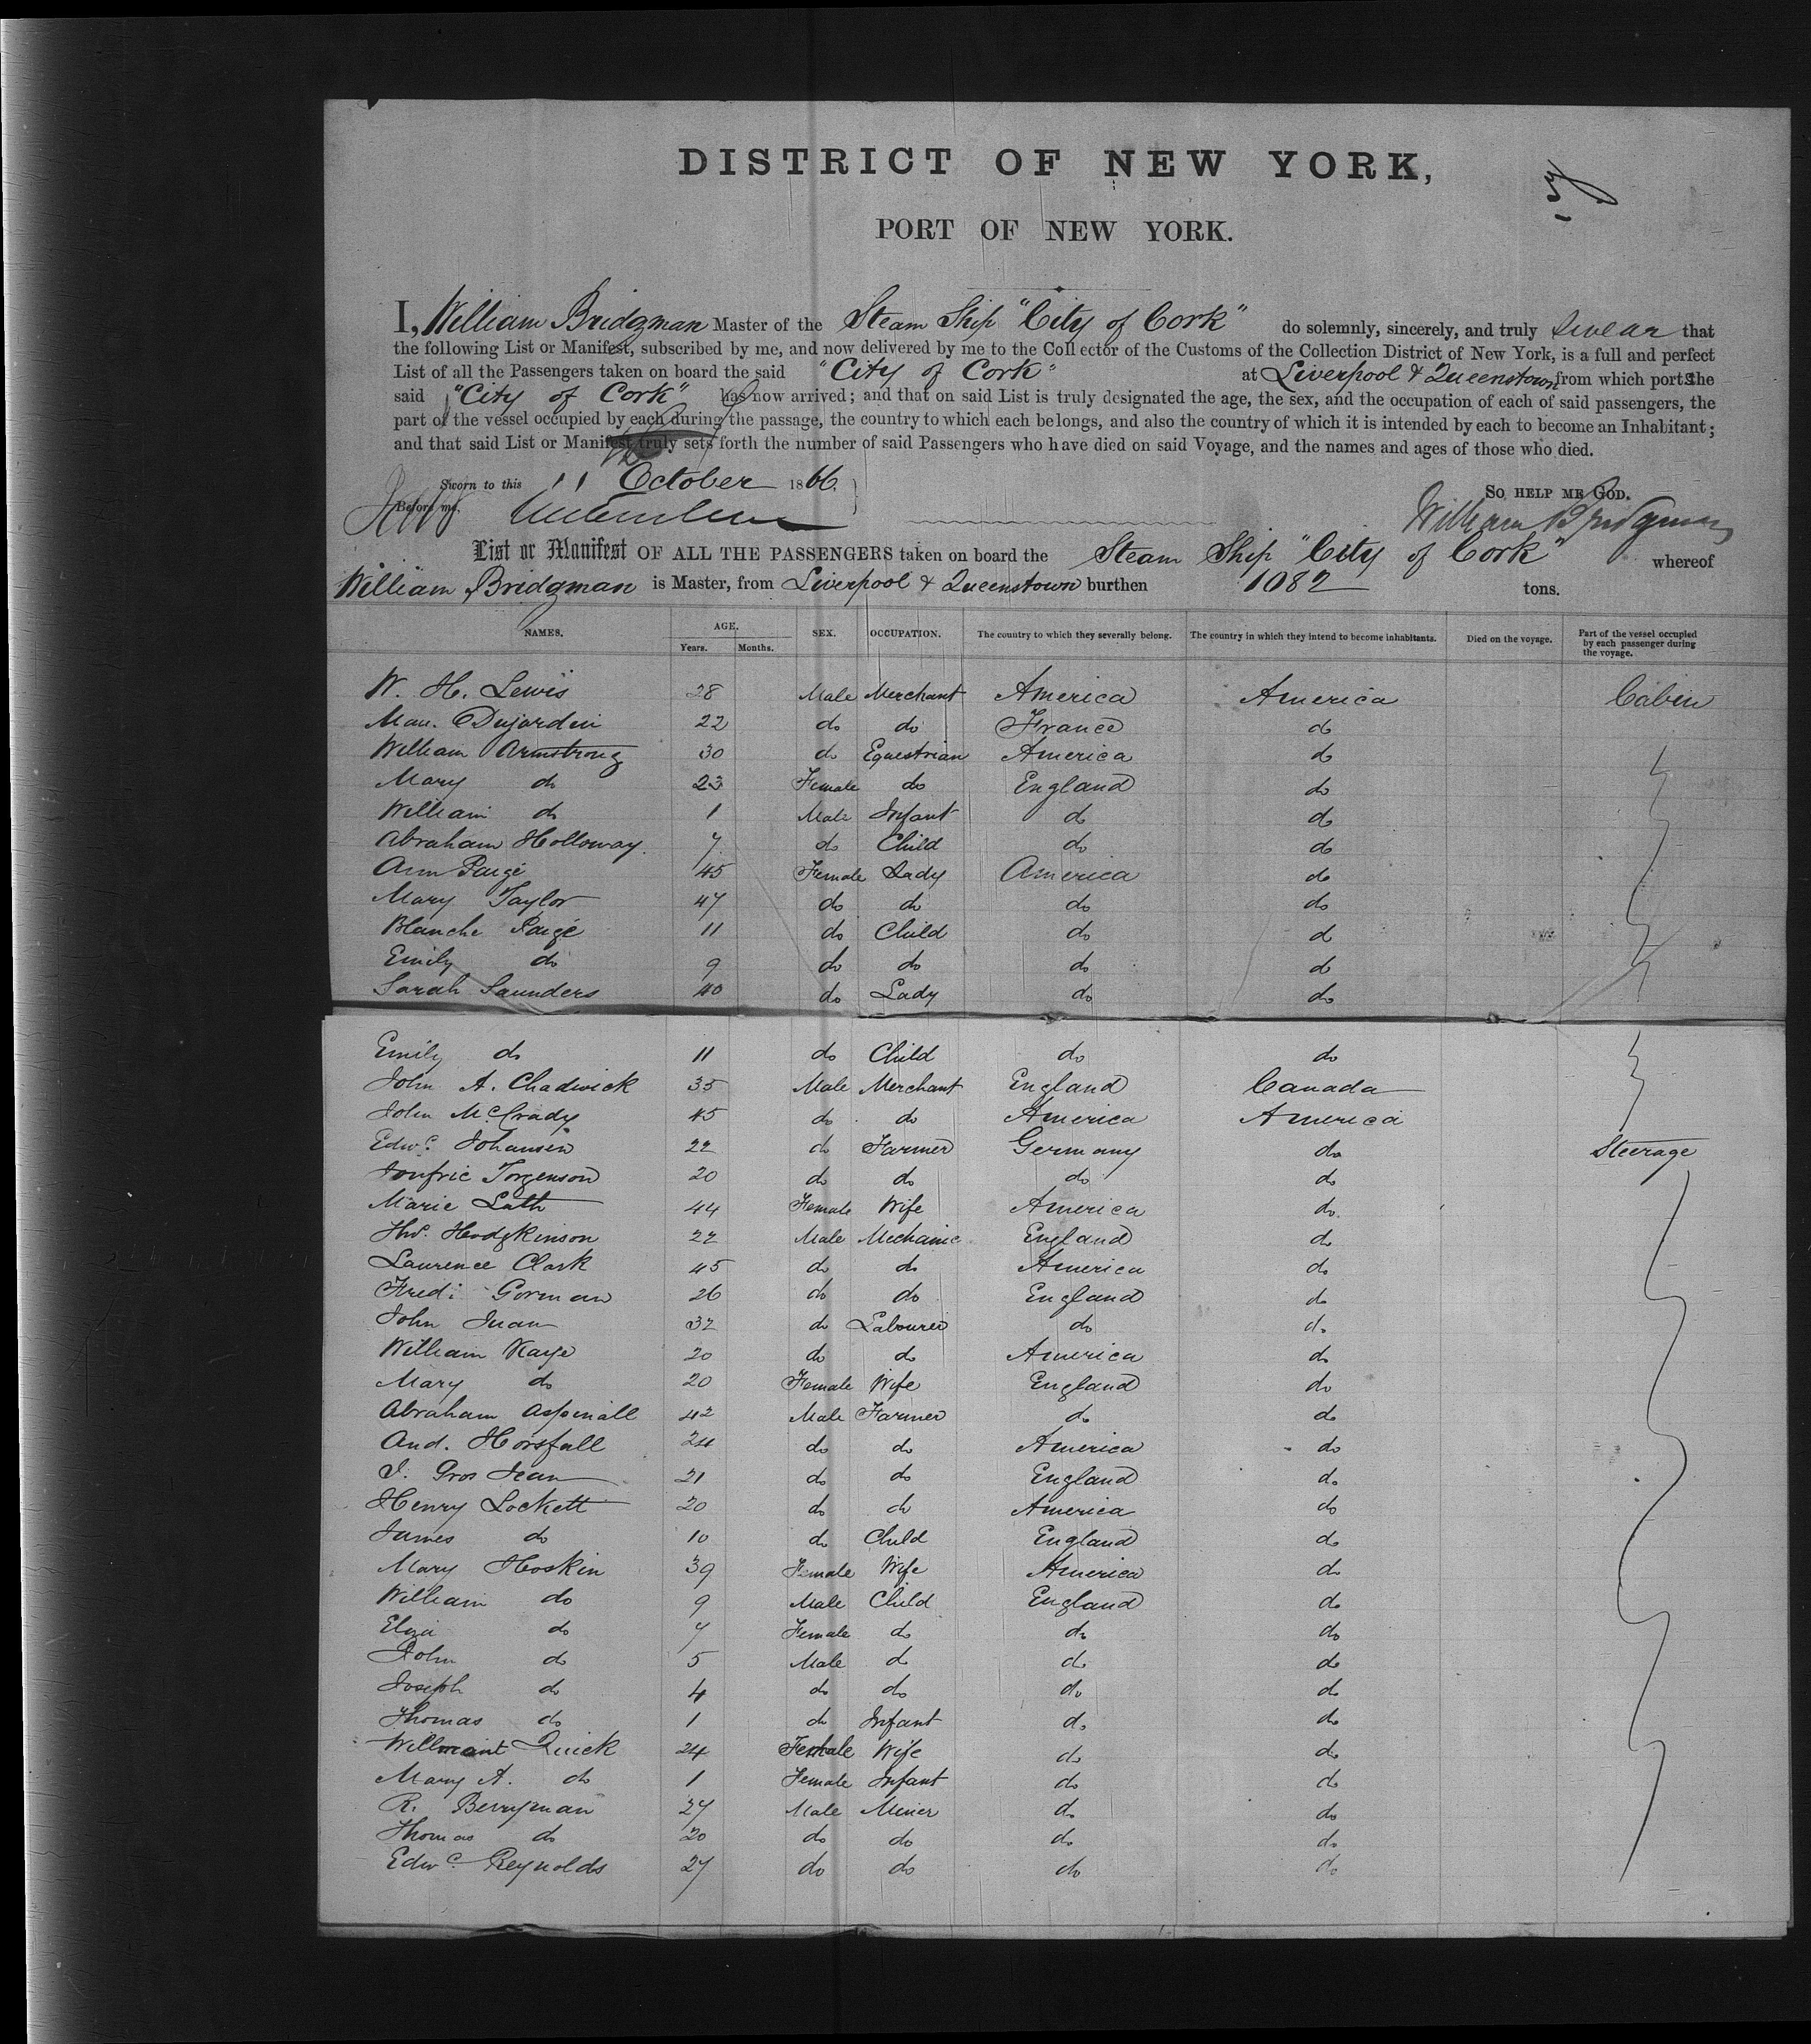 DISTRICT OF NEW YORK,
PORT OF NEW YORK.
I, William Bridgman Master of the Steam Ship "City of Cork" do solemnly, sincerely, and truly swear that
the following List or Manifest, subscribed by me, and now delivered by me to the Collector of the Customs of the Collection District of New York, is a full and perfect
List of all the Passengers taken on board the said "City of Cork" at Liverpool & Queenstown from which ports the
said "City of Cork" has now arrived; and that on said List is truly designated the age, the sex, and the occupation of each of said passengers, the
part of the vessel occupied by each during the passage, the country to which each belongs, and also the country of which it is intended by each to become an Inhabitant;
and that said List or Manifest truly sets forth the number of said Passengers who have died on said Voyage, and the names and ages of those who died.
Sworn to this 11 October 1866.
Before me,
SO HELP ME GOD.
William Bridgman
List or Manifest OF ALL THE PASSENGERS taken on board the Steam Ship "City of Cork" whereof
William Bridgman is Master, from Liverpool & Queenstown burthen 1082 tons.
NAMES. AGE. Years. Months. SEX. OCCUPATION. The country to which they severally belong. The country in which they intend to become inhabitants. Died on the voyage. Part of the vessel occupied by each passenger during the voyage.
W. H. Lewis 28 Male Merchant America America Cabin
Mau. Dujardin 22 do do France do
William Armstrong 30 do Equestrian America do
Mary do 23 Female do England do
William do 1 Male Infant do do
Abraham Holloway 7 do Child do do
Ann Paige 45 Female Lady America do
Mary Taylor 47 do do do do
Blanche Paige 11 do Child do do
Emily do 9 do do do do
Sarah Saunders 40 do Lady do do
Emily do 11 do Child do do
John A. Chadwick 35 Male Merchant England Canada
John McCrady 45 do do America America
Edwd. Johansen 22 do Farmer Germany do Steerage
Torgenson 20 do do do do
Marie Lath 44 Female Wife America do
Thos. Hodgkinson 22 Male Mechanic England do
Laurence Clark 45 do do America do
Fredk Gorman 26 do do England do
John Juan 32 do Labourer do do
William Kaye 20 do do America do
Mary do 20 Female Wife England do
Abraham Aspinall 42 Male Farmer do do
And. Horsfall 24 do do America do
J. Gros Jean 21 do do England do
Henry Lockett 20 do do America do
James do 10 do Child England do
Mary Hoskin 39 Female Wife America do
William do 9 Male Child England do
Eliza do 7 Female do do do
John do 5 Male do do do
Joseph do 4 do do do do
Thomas do 1 do Infant do do
Willmont Quick 24 Female Wife do do
Mary A. do 1 Female Infant do do
R. Berryman 27 Male Miner do do
Thomas do 20 do do do do
Edwd. Reynolds 27 do do do do